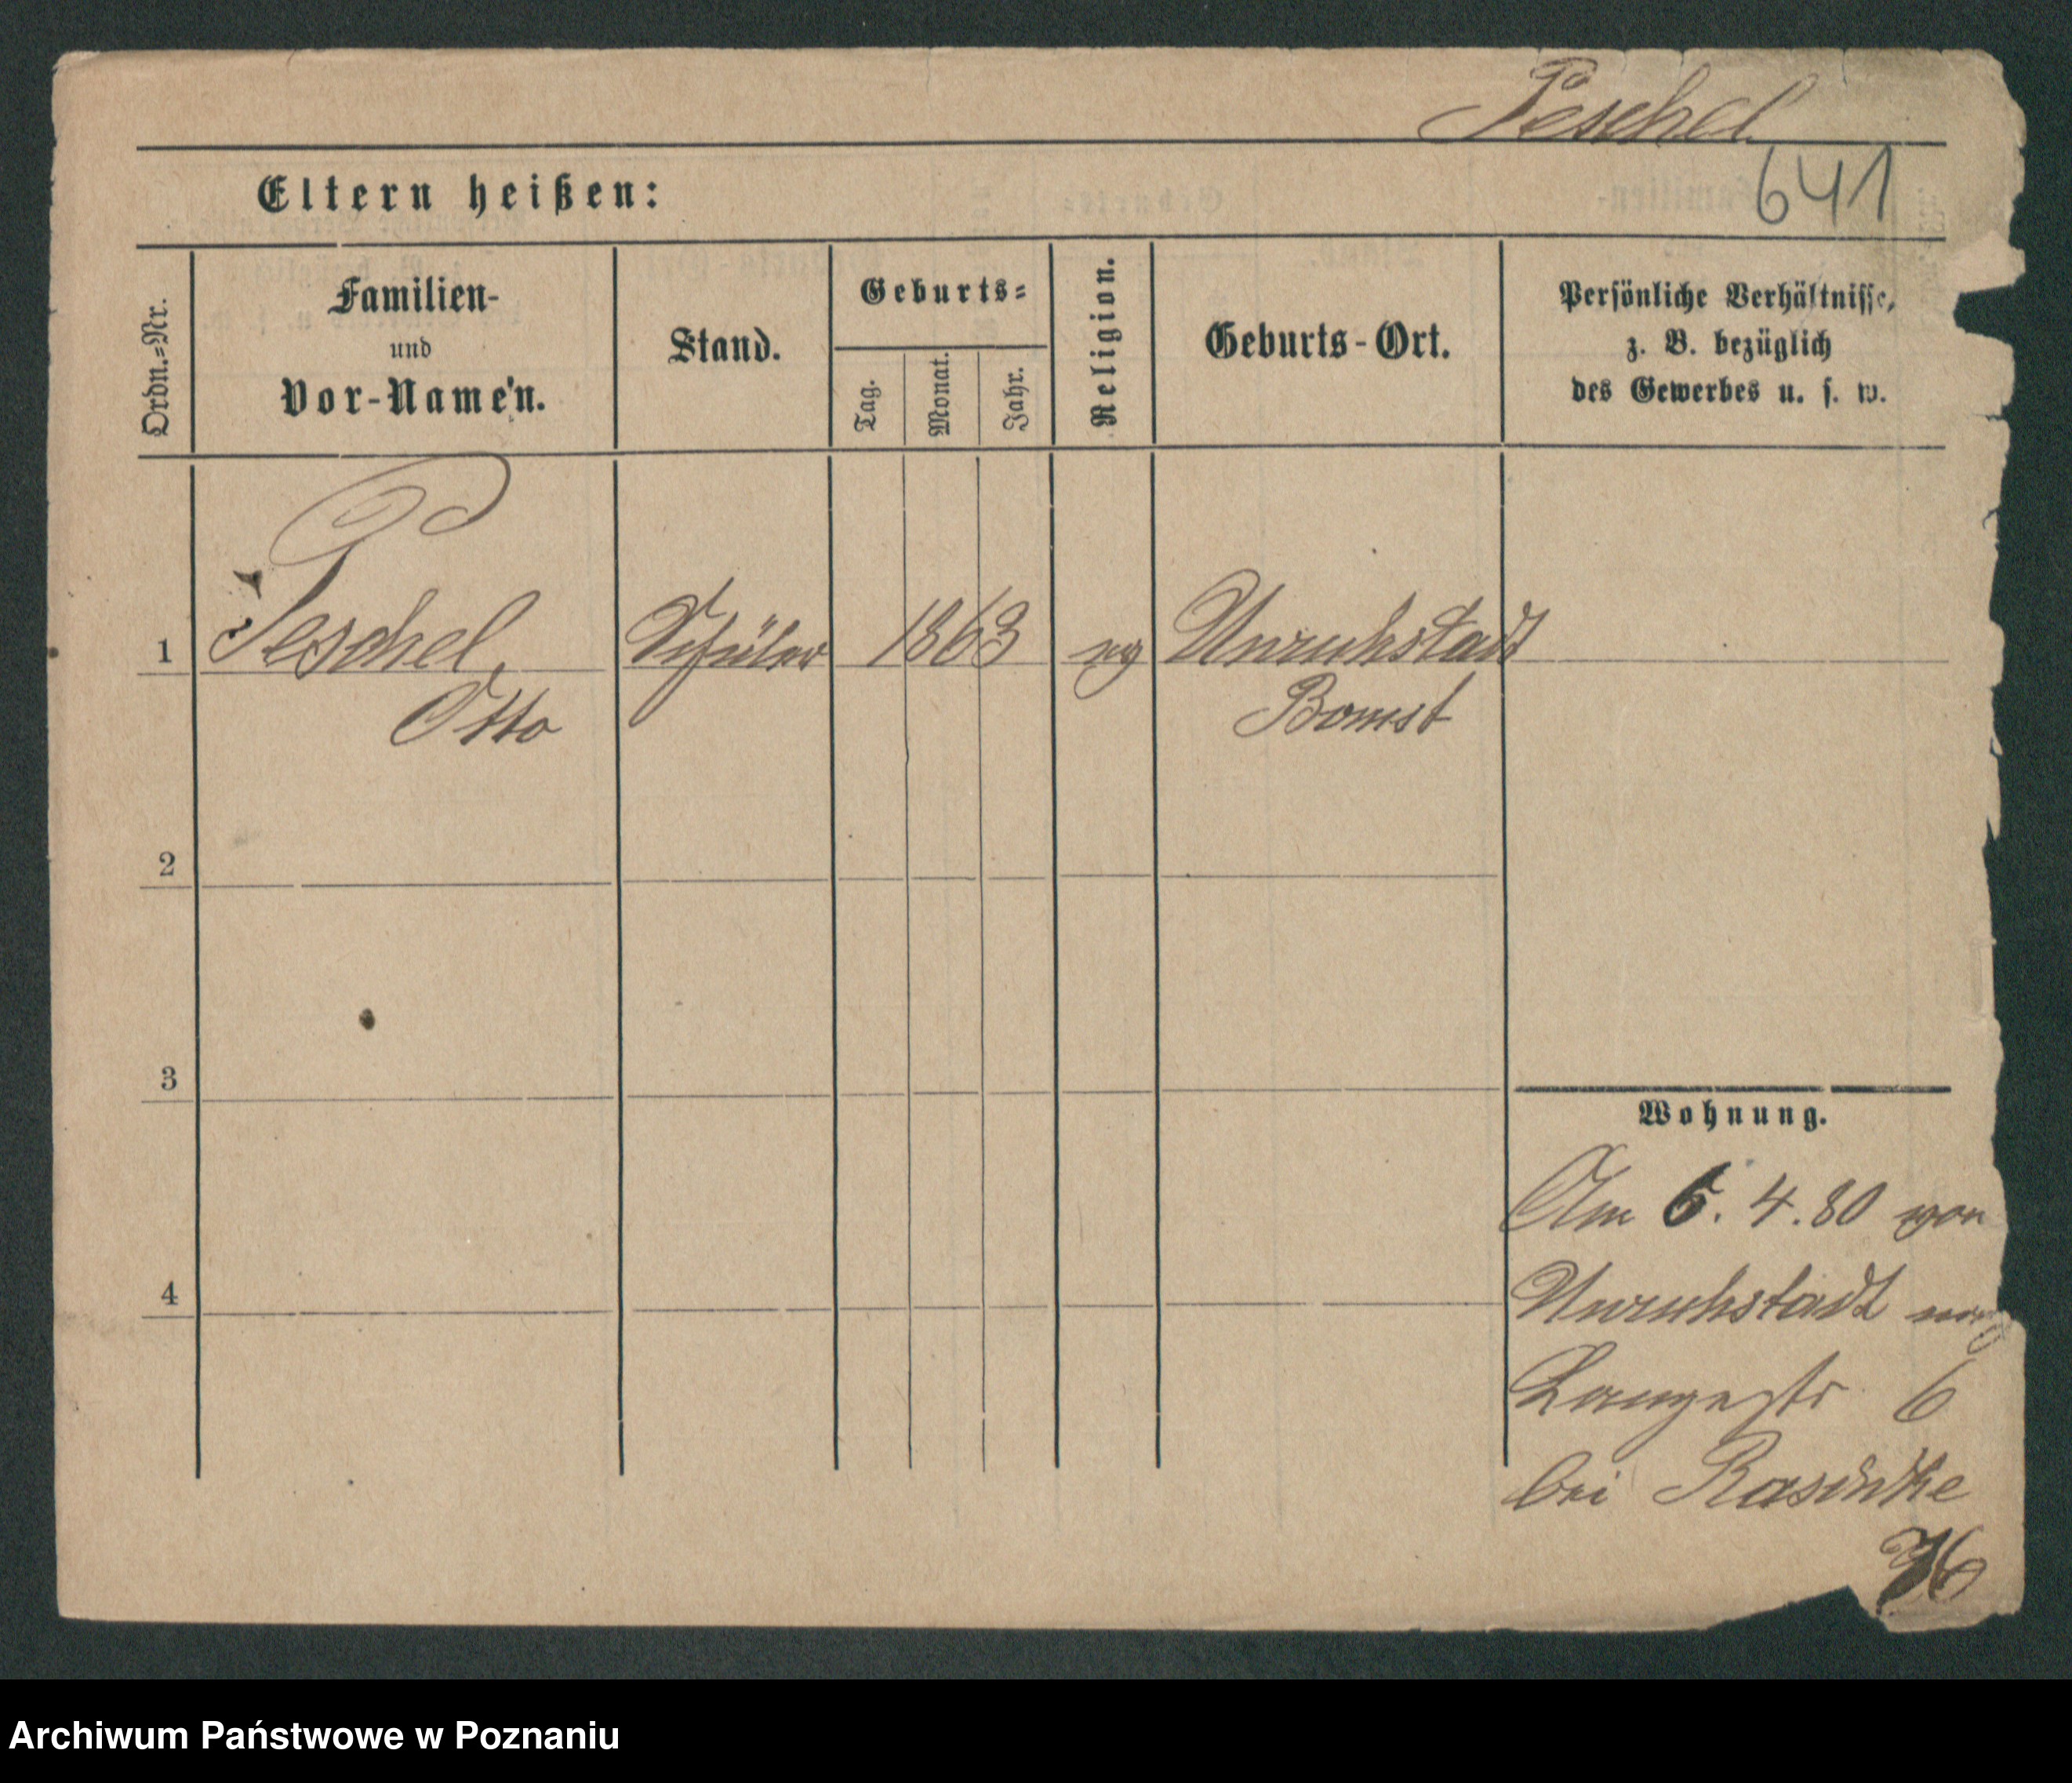 Peschel
641
Eltern heißen:
Ordn.=Nr.
Familien-
und
Vor-Namen.
Stand.
Geburts=
Tag.
Monat.
Jahr.
Religion.
Geburts-Ort.
Persönliche Verhältnisse,
z. B. bezüglich
des Gewerbes u. s. w.
1
Peschel,
Otto
Schüler
1863
ev
Unruhstadt
Bomst
2
3
4
Wohnung.
Am 6. 4. 80 von
Unruhstadt nach
Langestr 6
bei
Archiwum Państwowe w Poznaniu